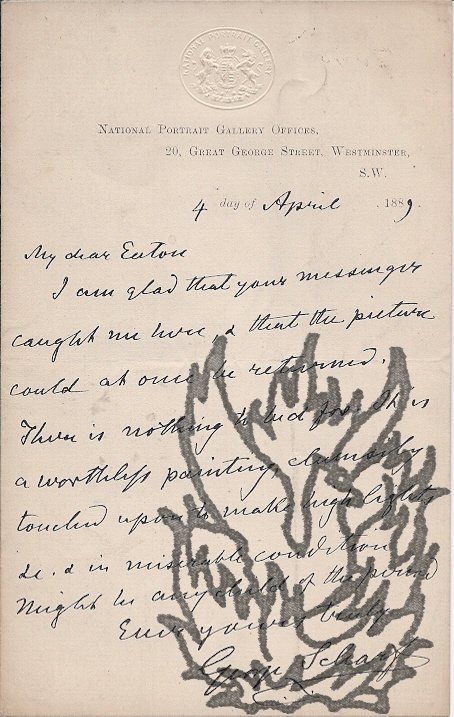 NATIONAL PORTRAIT GALLERY
NATIONAL PORTRAIT GALLERY OFFICES,
20, GREAT GEORGE STREET, WESTMINSTER,
S.W.
4 day of April 1889.
My dear Eaton
I am glad that your messenger
caught me here, & that the picture
could at once be returned.
There is nothing to bid for. It is
a worthless painting, clumsily
touched upon to make high lights
&c. & in miserable condition
Might be any child of the period
Ever yours truly
George Scharf